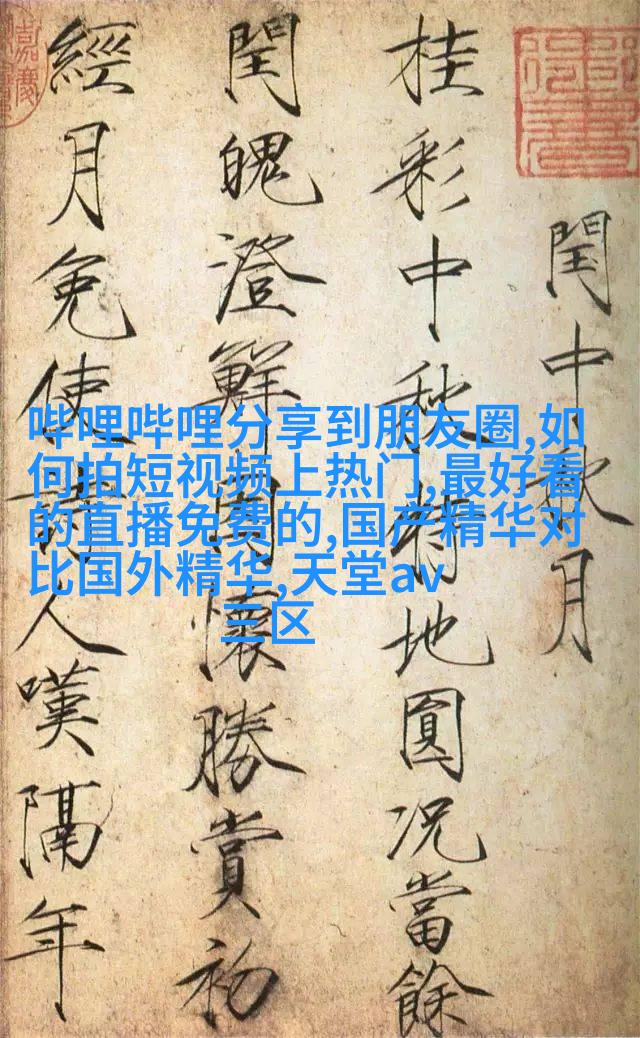 閏中秋月
桂彩中秋特地圓況當餘
閏魄澄鮮因懷勝賞初
經月免使詩人嘆隔年
哔哩哔哩分享到朋友圈,如
何拍短视频上热门,最好看
的直播免费的,国产精华对
比国外精华,天堂av
三区